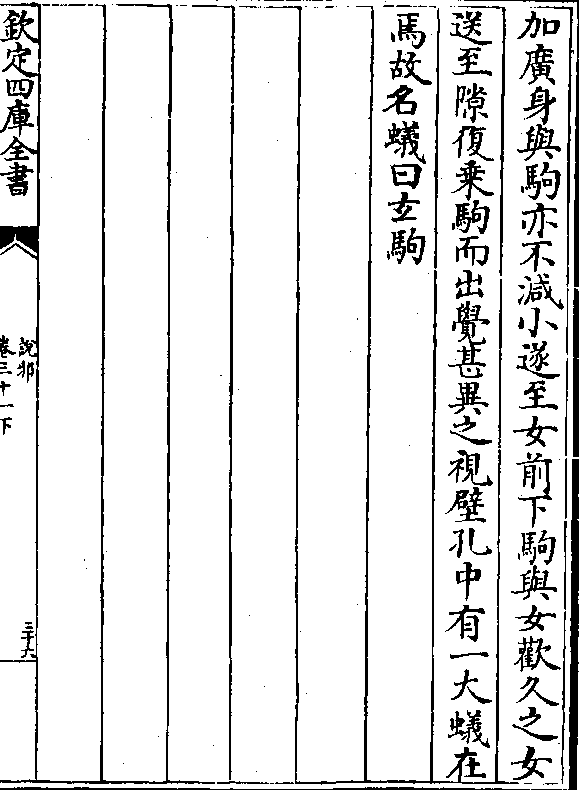 加廣身與駒亦不減小遂至女前下駒與女歡久之女
送至隙復乗駒而出覺甚異之視壁孔中有一大蟻在
焉故名蟻曰𤣥駒
欽定四庫全書
說郛
卷三十一下
三十六